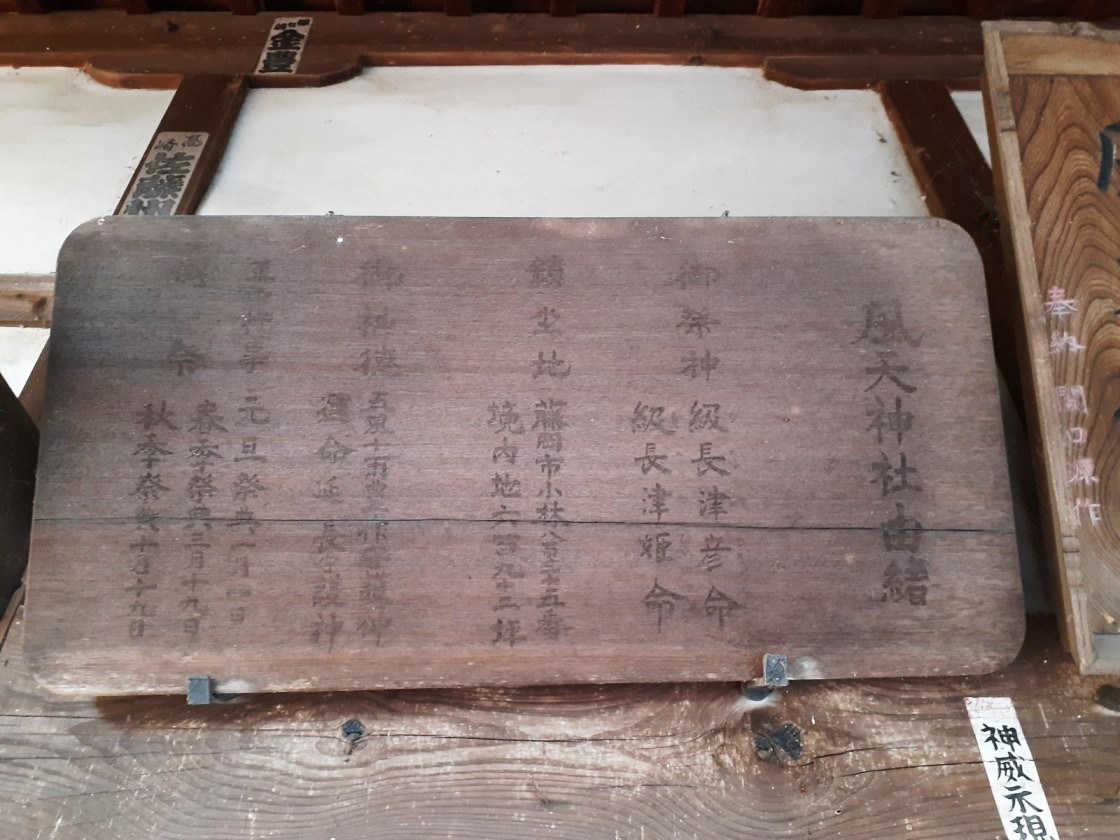 風天神社由緒
御祭神
級長津彦命
級長津姫命
鎮坐地
藤岡市小林八百三十五番
境内地六百九十二坪
御神德
五風十雨豊作
運命延長守護神
年中行事
元旦祭典一月一日
春季祭典三月十九日
祭
秋季祭典十月十九日
金豊
高崎
佐藤
奉納 関口源作
神威示現